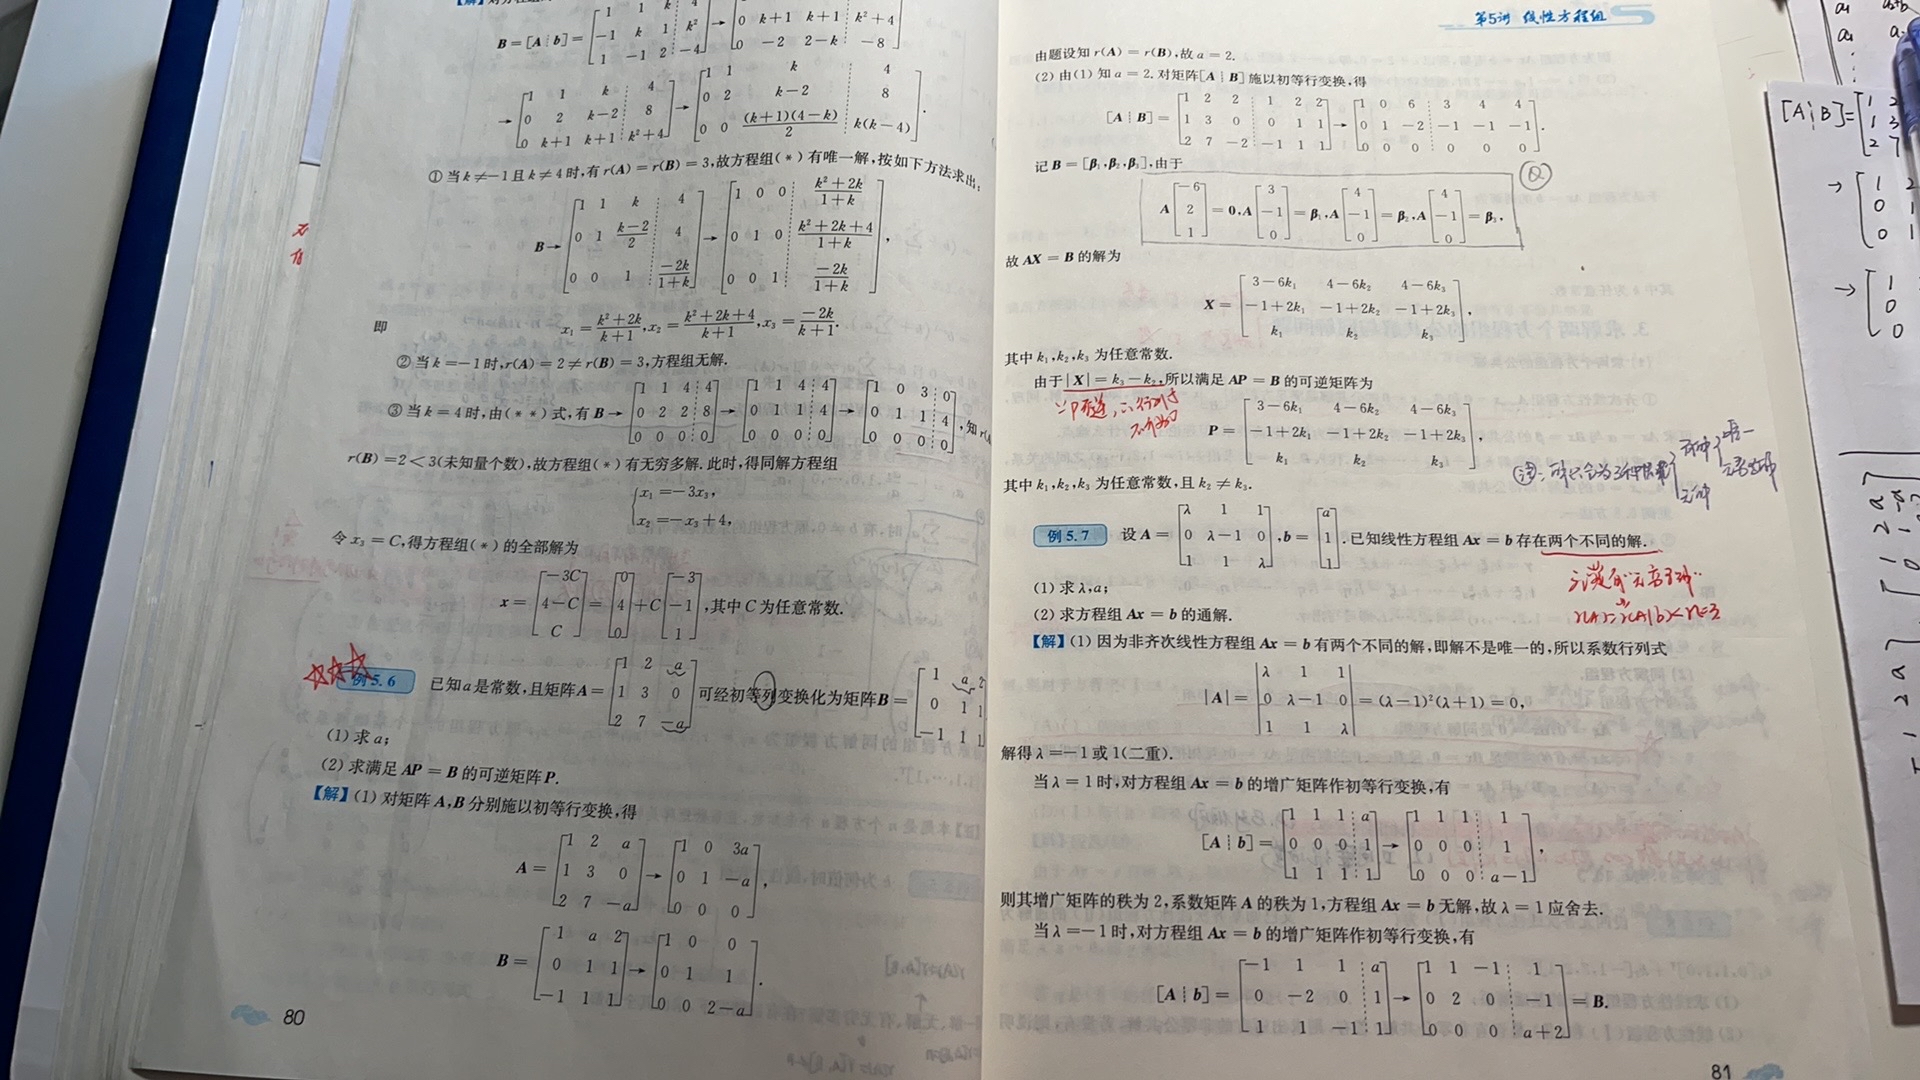 B=[A┆b]= [1 1 k 4; -1 k 1 k²; 1 -1 2 -4] → [0 k+1 k+1 k²+4; 0 -2 2-k -8]
→ [1 1 k 4; 0 2 k-2 8; 0 k+1 k+1 k²+4] → [1 1 k 4; 0 2 k-2 8; 0 0 (k+1)(4-k)/2 k(k-4)].
①当k≠-1且k≠4时,有r(A)=r(B)=3,故方程组(*)有唯一解,按如下方法求出:
B→ [1 1 k 4; 0 1 (k-2)/2 4; 0 0 1 -2k/(1+k)] → [1 0 0 (k²+2k)/(1+k); 0 1 0 (k²+2k+4)/(1+k); 0 0 1 -2k/(1+k)],
即 x₁=(k²+2k)/(k+1),x₂=(k²+2k+4)/(k+1),x₃=-2k/(k+1).
②当k=-1时,r(A)=2≠r(B)=3,方程组无解.
③当k=4时,由(**)式,有B→ [1 1 4 4; 0 2 2 8; 0 0 0 0] → [1 1 4 4; 0 1 1 4; 0 0 0 0] → [1 0 3 0; 0 1 1 4; 0 0 0 0],知r(A
r(B)=2<3(未知量个数),故方程组(*)有无穷多解.此时,得同解方程组
{x₁=-3x₃,
x₂=-x₃+4,
令x₃=C,得方程组(*)的全部解为
x= [-3C; 4-C; C] = [0; 4; 0] +C [-3; -1; 1],其中C为任意常数.
例5.6 已知a是常数,且矩阵A= [1 2 a; 1 3 0; 2 7 -a] 可经初等列变换化为矩阵B= [1 a 2; 0 1 1; -1 1 1]
(1)求a;
(2)求满足AP=B的可逆矩阵P.
【解】(1)对矩阵A,B分别施以初等行变换,得
A= [1 2 a; 1 3 0; 2 7 -a] → [1 0 3a; 0 1 -a; 0 0 0],
B= [1 a 2; 0 1 1; -1 1 1] → [1 0 0; 0 1 1; 0 0 2-a].
80
第5讲 线性方程组
由题设知r(A)=r(B),故a=2.
(2)由(1)知a=2.对矩阵[A┆B]施以初等行变换,得
[A┆B]= [1 2 2 1 2 2; 1 3 0 0 1 1; 2 7 -2 -1 1 1] → [1 0 6 3 4 4; 0 1 -2 -1 -1 -1; 0 0 0 0 0 0].
记B=[β₁,β₂,β₃],由于
A [-6; 2; 1] =0,A [3; -1; 0] =β₁,A [4; -1; 0] =β₂,A [4; -1; 0] =β₃,
故AX=B的解为
X= [3-6k₁ 4-6k₂ 4-6k₃; -1+2k₁ -1+2k₂ -1+2k₃; k₁ k₂ k₃],
其中k₁,k₂,k₃为任意常数.
由于|X|=k₃-k₂,所以满足AP=B的可逆矩阵为
P= [3-6k₁ 4-6k₂ 4-6k₃; -1+2k₁ -1+2k₂ -1+2k₃; k₁ k₂ k₃],
其中k₁,k₂,k₃为任意常数,且k₂≠k₃.
例5.7 设A= [λ 1 1; 0 λ-1 0; 1 1 λ],b= [a; 1; 1].已知线性方程组Ax=b存在两个不同的解.
r(A)=r(A|b)<n=3
(1)求λ,a;
(2)求方程组Ax=b的通解.
【解】(1)因为非齐次线性方程组Ax=b有两个不同的解,即解不是唯一的,所以系数行列式
|A|= |λ 1 1; 0 λ-1 0; 1 1 λ| =(λ-1)²(λ+1)=0,
解得λ=-1或1(二重).
当λ=1时,对方程组Ax=b的增广矩阵作初等行变换,有
[A┆b]= [1 1 1 a; 0 0 0 1; 1 1 1 1] → [1 1 1 1; 0 0 0 1; 0 0 0 a-1],
则其增广矩阵的秩为2,系数矩阵A的秩为1,方程组Ax=b无解,故λ=1应舍去.
当λ=-1时,对方程组Ax=b的增广矩阵作初等行变换,有
[A┆b]= [-1 1 1 a; 0 -2 0 1; 1 1 -1 1] → [1 1 -1 1; 0 2 0 -1; 0 0 0 a+2] =B.
81
[A┆B]= [1 2; 1 3; 2 7
→ [1 2; 0 1; 0 1
→ [1; 0; 0